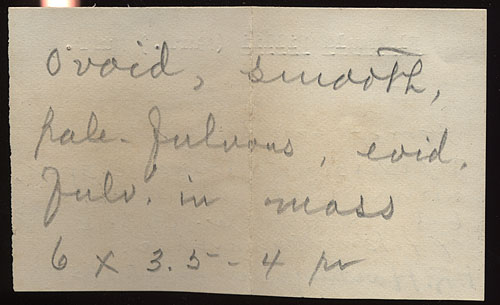 Ovoid, smooth,
pale-fulvous, evid.
fulv. in mass
6 x 3.5-4